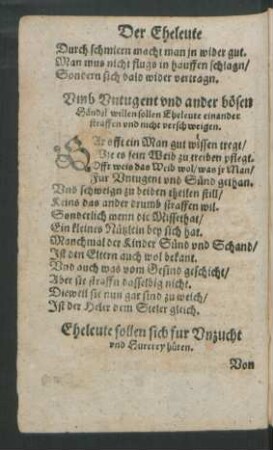 Der Eheleute
Durch schmiern macht man jn wider gut.
Man mus nicht flugs in hauffen schlagn/
Sondern sich bald wider vertragn.
Vmb Vntugent vnd ander bösen
Händel willen sollen Eheleute einander
straffen vnd nicht verschweigen.
Gar offt ein Man gut wissen tregt/
Wie es sein Weib zu treiben pflegt.
Offt weis das Weib wol/ was jr Man/
Für Vntugent vnd Sünd gethan.
Vnd schweign zu beiden theilen still/
Keins das ander drumb straffen wil.
Sonderlich wenn die Missethat/
Ein kleines Nützlein bey sich hat.
Manchmal der Kinder Sünd vnd Schand/
Ist den Eltern auch wol bekant.
Vnd auch was vom Gesind geschicht/
Aber sie straffn dasselbig nicht.
Dieweil sie nun gar sind zu weich/
Ist der Heler dem Steler gleich.
Eheleute sollen sich für Vnzucht
vnd Hurerey hüten.
Von